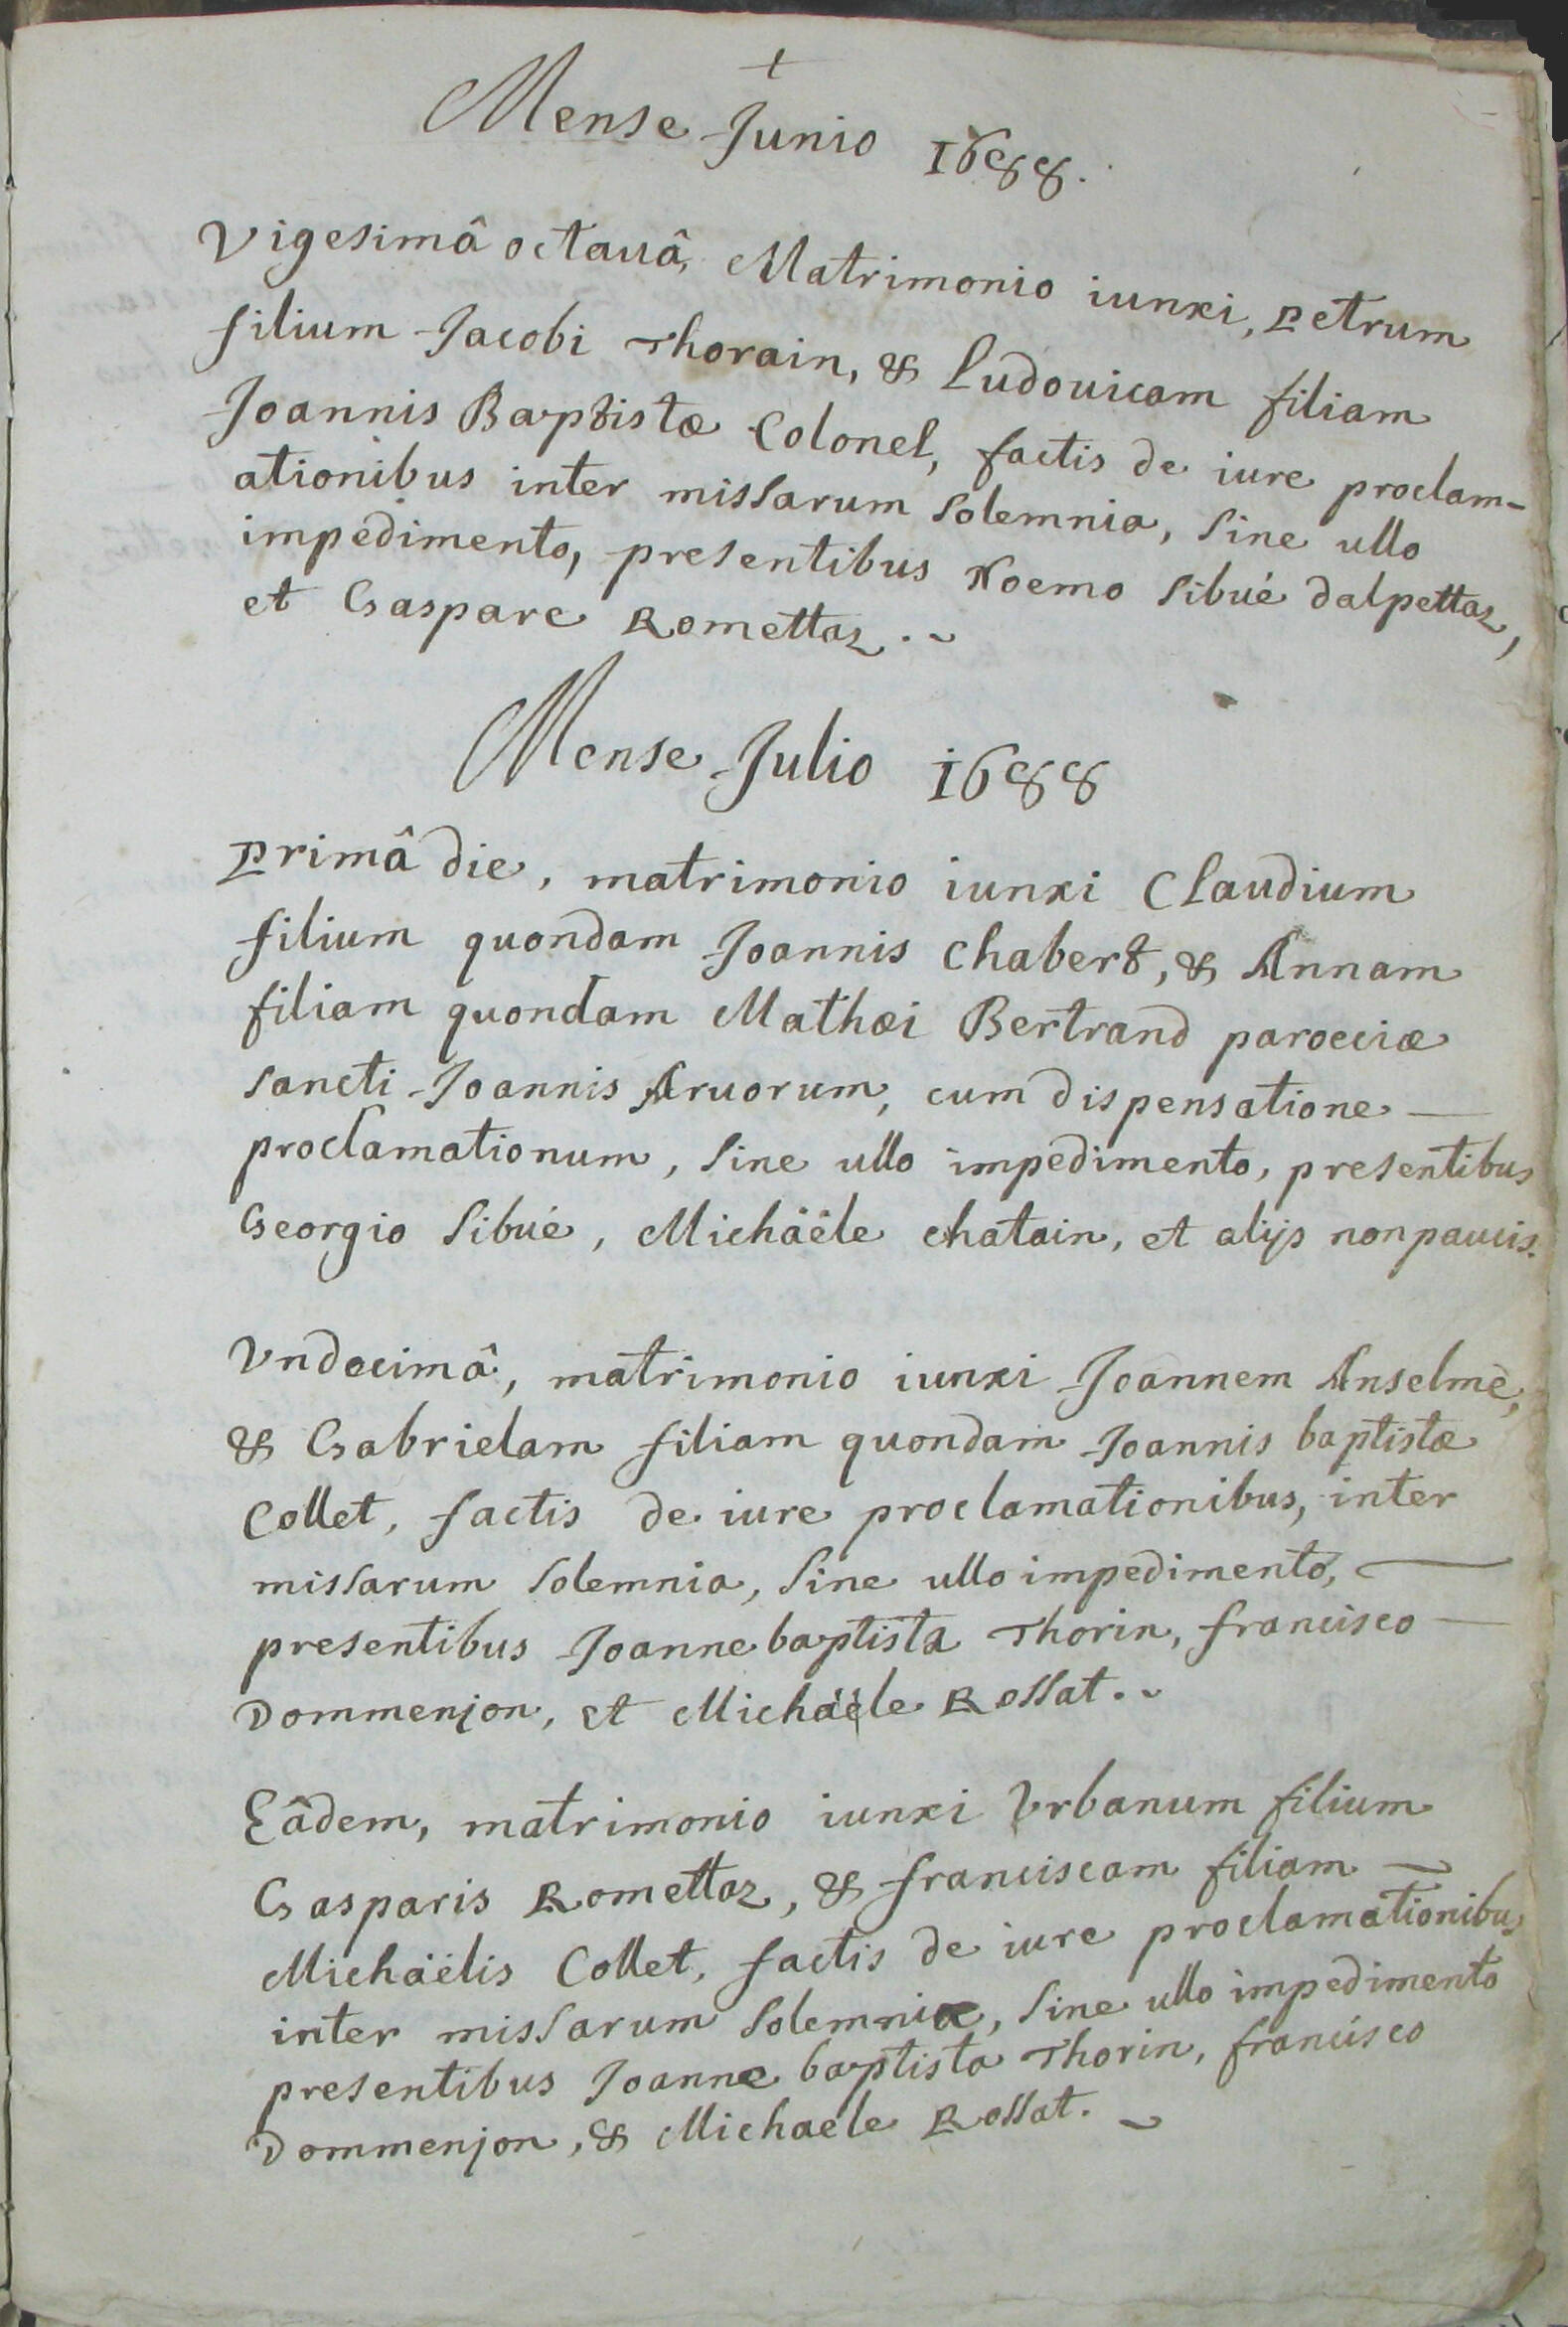 +
Mense Junio 1688.
Vigesimâ octauâ, Matrimonio iunxi, Petrum
filium Jacobi Thorain, & Ludouicam filiam
Joannis Baptistæ Colonel, factis de iure proclam-
ationibus inter missarum solemnia, sine ullo
impedimento, presentibus Noemo Sibué dalpettaz,
et Gaspare Romettaz.~
Mense Julio 1688
Primâ die, matrimonio iunxi Claudium
filium quondam Joannis Chabert, & Annam
filiam quondam Mathæi Bertrand parocciæ
sancti Joannis Aruorum, cum dispensatione —
proclamationum, sine ullo impedimento, presentibus
Georgio Sibué, Michäële chatain, et alijs non paucis.
Vndecimâ, matrimonio iunxi Joannem Anselme,
& Gabrielam filiam quondam Joannis baptistæ
Collet, factis de iure proclamationibus, inter
missarum solemnia, sine ullo impedimento, —
presentibus Joanne baptista Thorin, francisco —
Dommenjon, et Michäële Rossat.~
Eâdem, matrimonio iunxi Vrbanum filium
Gasparis Romettaz, & franciscam filiam —
Michäëlis Collet, factis de iure proclamationibus
inter missarum solemnia, sine ullo impedimento
presentibus Joanne baptista Thorin, francisco
Dommenjon, & Michaele Rossat. ~